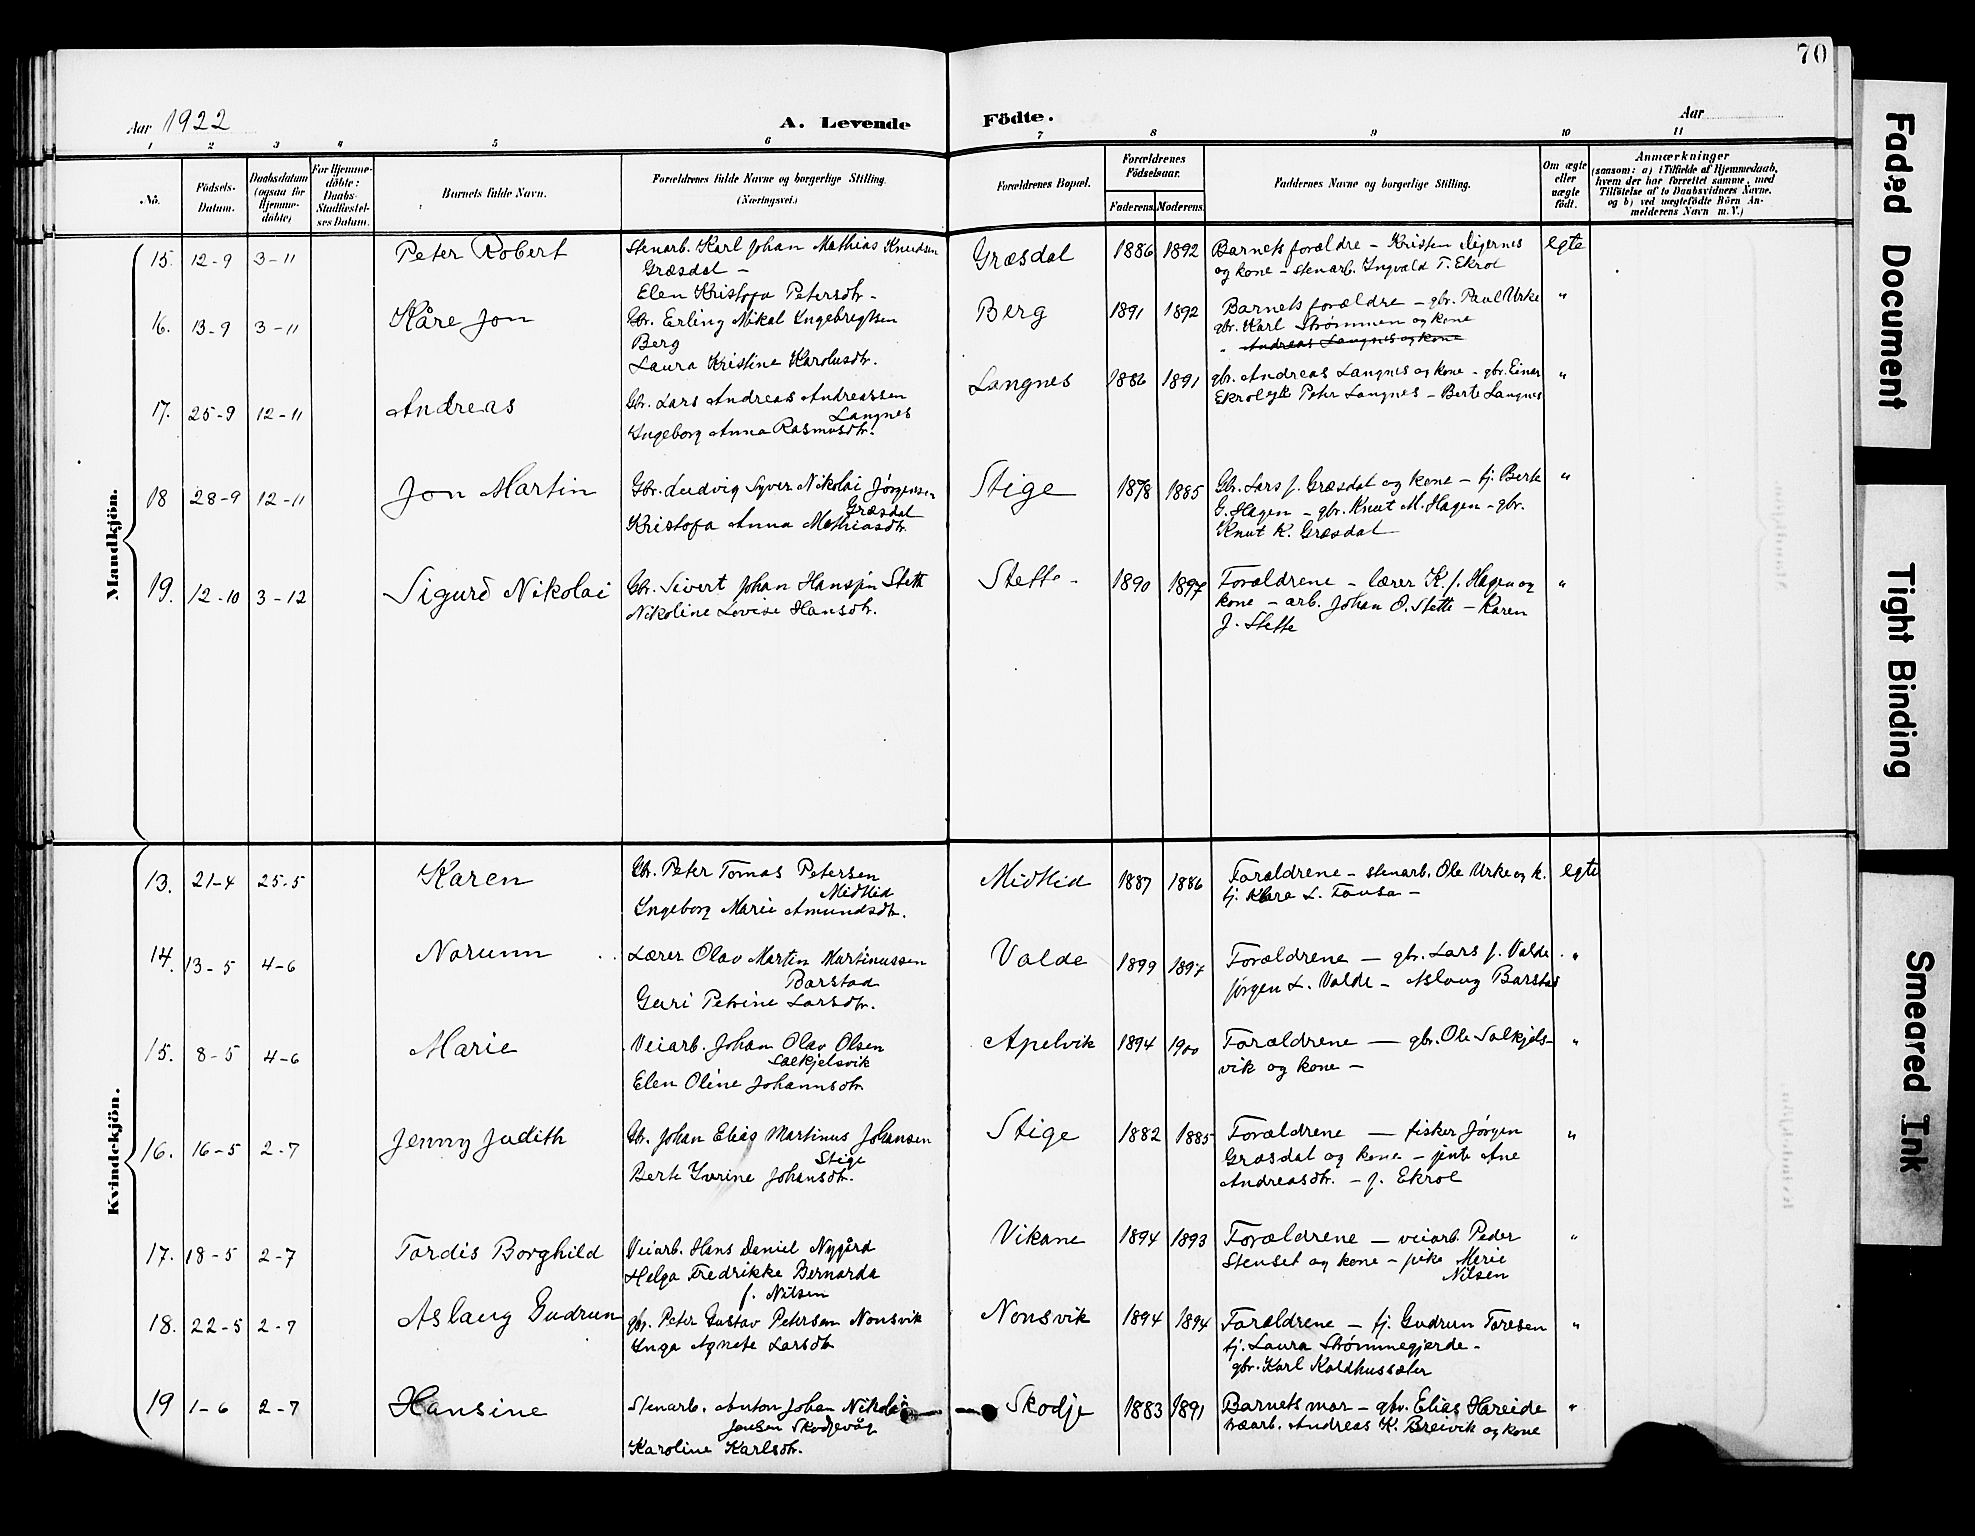 70
Aar 1922
A. Levende Födte.
Aar
1 2 3 4 5 6 7 8 9 10 11
No.
Födsels-Datum.
Daabsdatum (ogsaa for Hjemmedöbte)
For Hjemmedöbte: Daabs-Stadfæstelses Datum.
Barnets fulde Navn.
Forældrenes fulde Navne og borgerlige Stilling.
(Næringsvei.)
Forældrenes Bopæl.
Forældrenes Födselsaar.
Faderens. Moderens.
Faddernes Navne og borgerlige Stilling.
Om ægte eller uægte født.
Anmærkninger
(saasom: a) i Tilfælde af Hjemmedaab, hvem der har forrettet samme, med Tilföielse af to Daabsvidners Navne, og b) ved uægtefödte Börn Anmelderens Navn m. V.)
Mandkjön.
15. 12-9 3-11 Peter Robert
Stenarb. Karl Johan Mathias Knudsen
Græsdal –
Elen Kristofa Petersdtr. –
Græsdal 1886 1892
Barnets forældre – Kristen
og kone – stenarb. Ingvald T. Ekrol
egte
16. 13-9 3-11 Kåre Jon
Gbr. Erling Nikal Ingebregtsen
Berg
Laura Kristine Karolusdtr.
Berg 1891 1892
Barnets forældre – gbr. Paul Urke
gbr. Karl Strømmen og kone
" Andreas Langnes og kone
"
17. 25-9 12-11 Andreas
Gbr. Lars Andreas Andreassen
Langnes
Ingeborg Anna Rasmusdtr.
Langnes 1886 1891
gbr. Andreas Langnes og kone – gbr. Einar
Ekrol Peter Langnes – Berte Langnes
"
18 28-9 12-11 Jon Martin
Gbr. Ludvig Syver Nikolai Jørgensen
Græsdal
Kristofa Anna Mathiasdtr.
Stige 1878 1885
Gbr. Lars J. Græsdal og kone – tj. Berte
G. Hagen – gbr. Knut M. Hagen – gbr.
Knut K. Græsdal
"
19. 12-10 3-12 Sigurd Nikolai
Gbr. Sivert Johan Hansen Stette
Nikoline Lovise Hansdtr.
Stette – 1890 1897
Forældrene – lærer K. J. Hagen og
kone – arb. Johan O. Stette – Karen
J. Stette
"
Kvindekjön.
13. 21-4 25-5 Karen
Gbr. Peter Tomas Petersen
Midtlid
Ingeborg Marie Amundsdtr.
Midtlid 1887 1886
Forældrene – stenarb. Ole Urke og k.
tj. Klara L. Tausa –
egte
14. 13-5 4-6 Norunn
Lærer Olav Martin Martinussen
Barstad
Guri Petrine Larsdtr.
Valde 1899 1897
Forældrene — gbr. Lars J. Valde
Jørgen L. Valde – Aslaug Barstad
"
15. 8-5 4-6 Marie
Veiarb. Johan Olav Olsen
Solkjelsvik
Elen Oline Johannsdtr
Apelvik 1894 1900
Forældrene — gbr. Ole Solkjels-
vik og kone –
"
16. 16-5 2-7 Jenny Judith
Gb. Johan Elias Martinus Johansen
Stige
Berte Iverine Johansdtr.
Stige 1882 1885
Forældrene — fisker Jørgen
Græsdal og kone – jente Ane
Andreasdtr. – J. Ekrol
"
17. 18-5 2-7 Tordis Borghild
Veiarb. Hans Daniel Nygård
Helga Fredrikke Bernarda
f. Nilsen
Vikane 1894 1893
Forældrene — veiarb. Peder
Stenset og kone – pike Merie
Nilsen
"
18. 22-5 2-7 Aslaug Gudrun
gbr. Peter Gustav Petersen Nonsvik
Inga Agnete Larsdtr
Nonsvik 1894 1894
Forældrene – tj. Gudrun Toresen
tj. Laura Strømmegjerde –
gbr. Karl Koldhussæter
"
19 1-6 2-7 Hansine
Stenarb. Anton Johan Nikolai
Jensen Skodjevåg
Karoline Karlsdtr.
Skodje 1883 1891
Barnets mor – gbr. Elias Hareide
veiarb. Andreas K. Breivik og kone
"
Faded Document
Tight Binding
Smeared Ink